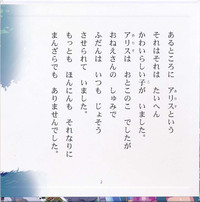 あるところに アリスという
それはそれは たいへん
かわいらしい子が いました。
アリスは おとこのこ でしたが
おねえさんの しゅみで
ふだんは いつも じょそう
させられて いました。
もっとも ほんにんも それなりに
まんざらでも ありませんでした。
1